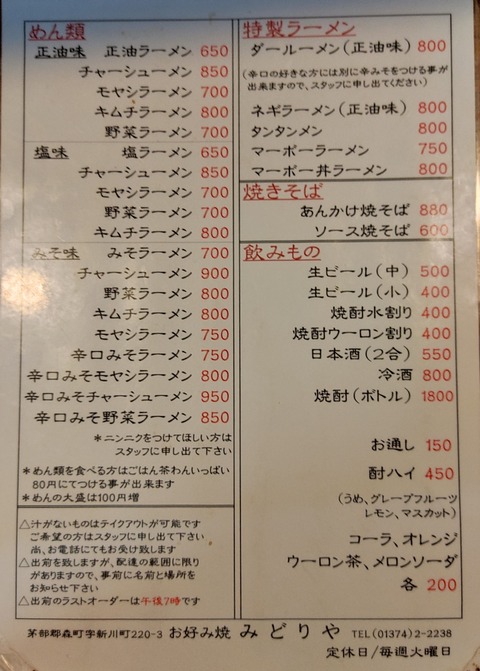 めん類
正油味 正油ラーメン 650
チャーシューメン 850
モヤシラーメン 700
キムチラーメン 800
野菜ラーメン 700
塩味 塩ラーメン 650
チャーシューメン 850
モヤシラーメン 700
野菜ラーメン 700
キムチラーメン 800
みそ味 みそラーメン 700
チャーシューメン 900
野菜ラーメン 800
キムチラーメン 800
モヤシラーメン 750
辛口みそラーメン 750
辛口みそモヤシラーメン 800
辛口みそチャーシューメン 950
辛口みそ野菜ラーメン 850
*ニンニクをつけてほしい方は
スタッフに申し出て下さい
*めん類を食べる方はごはん茶わんいっぱい
80円にてつける事が出来ます
*めんの大盛は100円増
△汁がないものはテイクアウトが可能です
ご希望の方はスタッフに申し出て下さい
尚、お電話にてもお受け致します
△出前を致しますが、配達の範囲に限り
がありますので、事前に名前と場所を
お知らせ下さい
△出前のラストオーダーは午後7時です
特製ラーメン
ダールーメン(正油味) 800
(辛口の好きな方には別に辛みそをつける事が
出来ますので、スタッフに申し出てください)
ネギラーメン(正油味) 800
タンタンメン 800
マーボーラーメン 750
マーボー丼ラーメン 800
焼きそば
あんかけ焼そば 880
ソース焼そば 600
飲みもの
生ビール(中) 500
生ビール(小) 400
焼酎水割り 400
焼酎ウーロン割り 400
日本酒(2合) 550
冷酒 800
焼酎(ボトル) 1800
お通し 150
酎ハイ 450
(うめ、グレープフルーツ
レモン、マスカット)
コーラ、オレンジ
ウーロン茶、メロンソーダ
各 200
茅部郡森町字新川町220-3 お好み焼 みどりや TEL(01374)2-2238
定休日/毎週火曜日